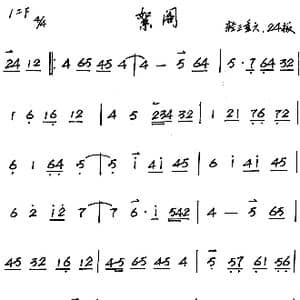 1=F 4/4 絮阁
24 12 ‖: 4 65 45 4 | 4 — 5 64 | 5 · 7 64 32 |
1 6 16 12 | 4 5 234 32 | 1 21 76 72 |
6 1 64 5 | 5 i 41 45 | 6 i 4i 45 |
6 2 i2 7 | 7 6 · i 542 | 4 — 5 65 |
45 32 16 12 | 4-5 65 45 4 | 5 57 61 56 |